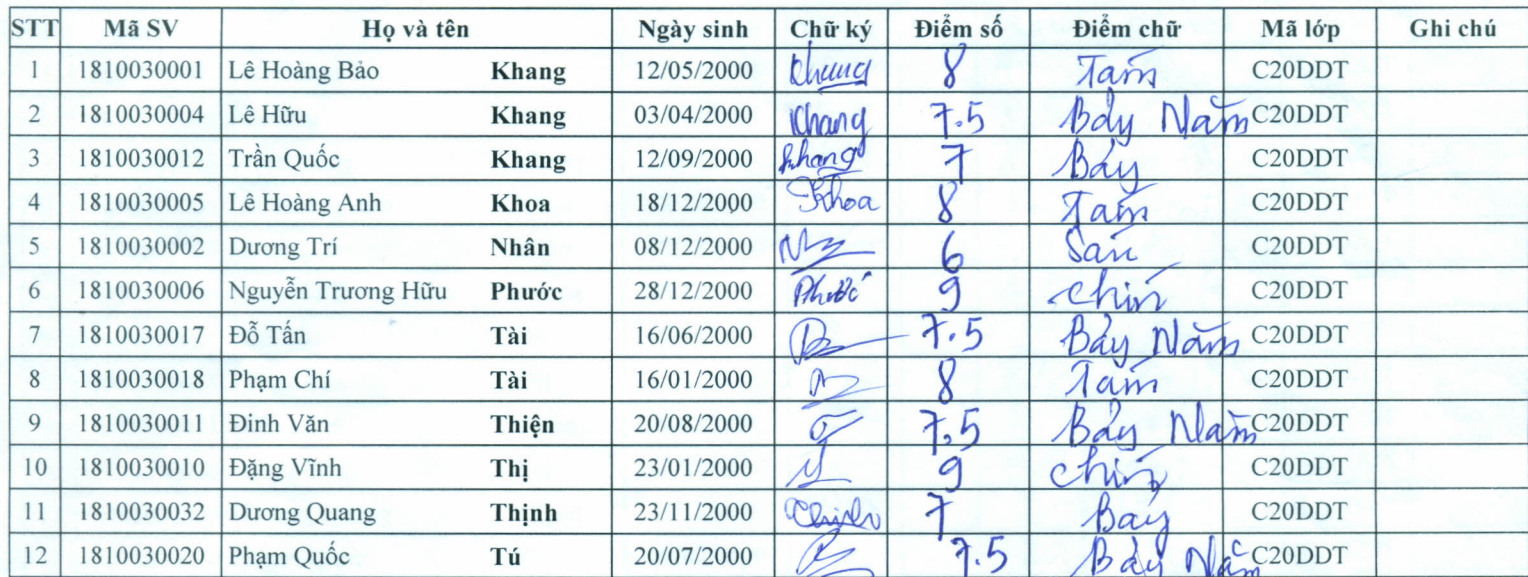 STT Mã SV Họ và tên Ngày sinh Chữ ký Điểm số Điểm chữ Mã lớp Ghi chú
1 1810030001 Lê Hoàng Bảo Khang 12/05/2000 Khang 8 Tám C20DDT
2 1810030004 Lê Hữu Khang 03/04/2000 Khang 7.5 Bảy Năm C20DDT
3 1810030012 Trần Quốc Khang 12/09/2000 Khang 7 Bảy C20DDT
4 1810030005 Lê Hoàng Anh Khoa 18/12/2000 Khoa 8 Tám C20DDT
5 1810030002 Dương Trí Nhân 08/12/2000 6 Sáu C20DDT
6 1810030006 Nguyễn Trương Hữu Phước 28/12/2000 Phước 9 Chín C20DDT
7 1810030017 Đỗ Tấn Tài 16/06/2000 7.5 Bảy Năm C20DDT
8 1810030018 Phạm Chí Tài 16/01/2000 8 Tám C20DDT
9 1810030011 Đinh Văn Thiện 20/08/2000 7.5 Bảy Năm C20DDT
10 1810030010 Đặng Vĩnh Thị 23/01/2000 9 Chín C20DDT
11 1810030032 Dương Quang Thịnh 23/11/2000 7 Bảy C20DDT
12 1810030020 Phạm Quốc Tú 20/07/2000 7.5 Bảy Năm C20DDT